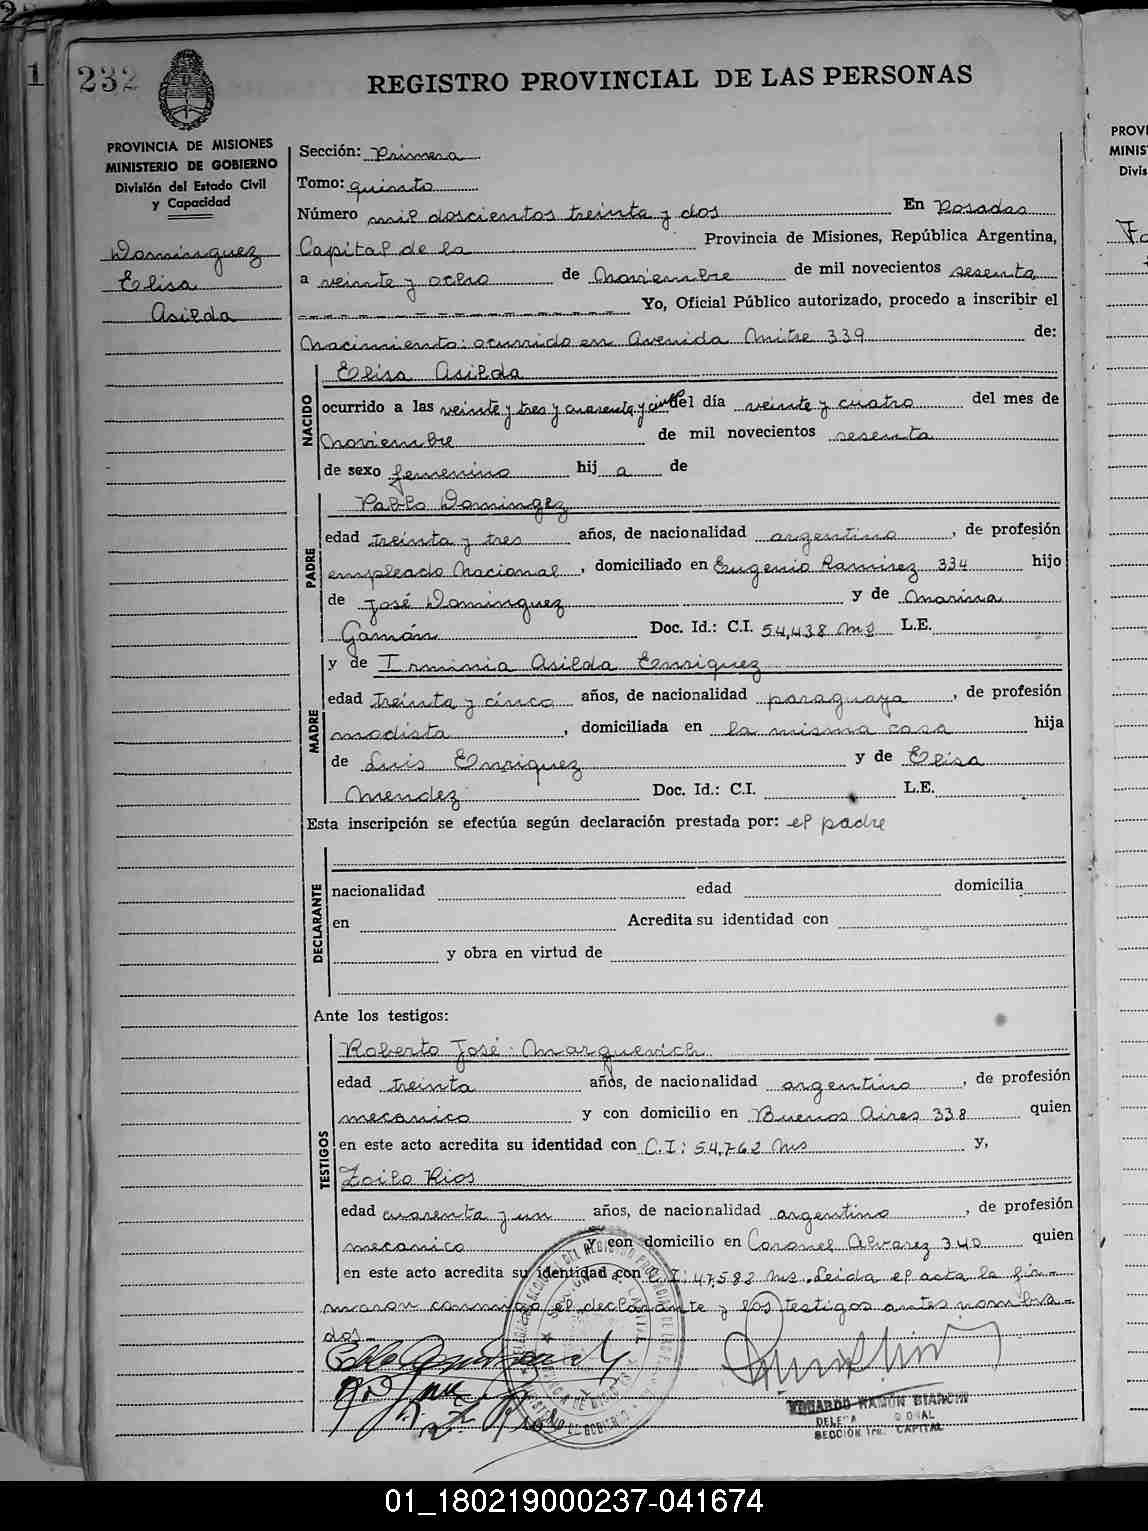 232
REGISTRO PROVINCIAL DE LAS PERSONAS
PROVINCIA DE MISIONES
MINISTERIO DE GOBIERNO
División del Estado Civil
y Capacidad
Dominguez
Elisa
Asilda
Sección: Primera
Tomo: quinto
Número mil doscientos treinta y dos En Posadas
Capital de la Provincia de Misiones, República Argentina,
a veinte y ocho de Noviembre de mil novecientos sesenta
Yo, Oficial Público autorizado, procedo a inscribir el
Nacimiento: ocurrido en Avenida Mitre 339 de:
NACIDO
Elisa Asilda
ocurrido a las veinte y tres y cuarenta y cinco del día veinte y cuatro del mes de
Noviembre de mil novecientos sesenta
de sexo femenino hij a de
PADRE
Pablo Domingez
edad treinta y tres años, de nacionalidad argentino, de profesión
empleado Nacional, domiciliado en Eugenio Ramirez 334 hijo
de José Dominguez y de Marina
Gamón Doc. Id.: C.I. 54,438 Ms L.E.
MADRE
y de Irminia Asilda Enriquez
edad treinta y cinco años, de nacionalidad paraguaya, de profesión
modista, domiciliada en la misma casa hija
de Luis Enriquez y de Elisa
Mendez Doc. Id.: C.I. L.E.
Esta inscripción se efectúa según declaración prestada por: el padre
DECLARANTE
nacionalidad edad domicilia
en Acredita su identidad con
y obra en virtud de
Ante los testigos:
TESTIGOS
Roberto José Marquevich
edad treinta años, de nacionalidad argentino, de profesión
mecanico y con domicilio en Buenos Aires 338 quien
en este acto acredita su identidad con C.I: 54,762 Ms y,
Zoilo Rios
edad cuarenta y un años, de nacionalidad argentino, de profesión
mecanico y con domicilio en Coronel Alvarez 340 quien
en este acto acredita su identidad con C.I: 47,582 Ms. Leida el acta la fir-
maron conmigo el declarante y los testigos antes nombra-
dos-
EDUARDO RAMON BIANCHI
SECCIÓN 1ra. CAPITAL
01_180219000237-041674